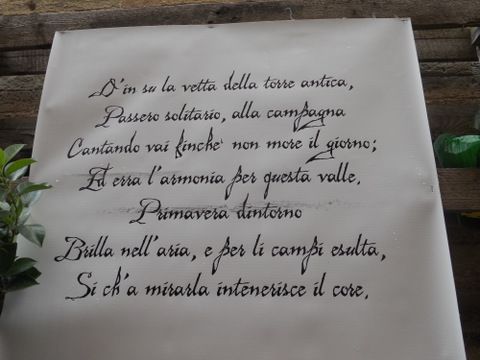 D'in su la vetta della torre antica,
Passero solitario, alla campagna
Cantando vai finche' non more il giorno;
Ed erra l'armonia per questa valle.
Primavera dintorno
Brilla nell'aria, e per li campi esulta,
Si ch'a mirarla intenerisce il core.